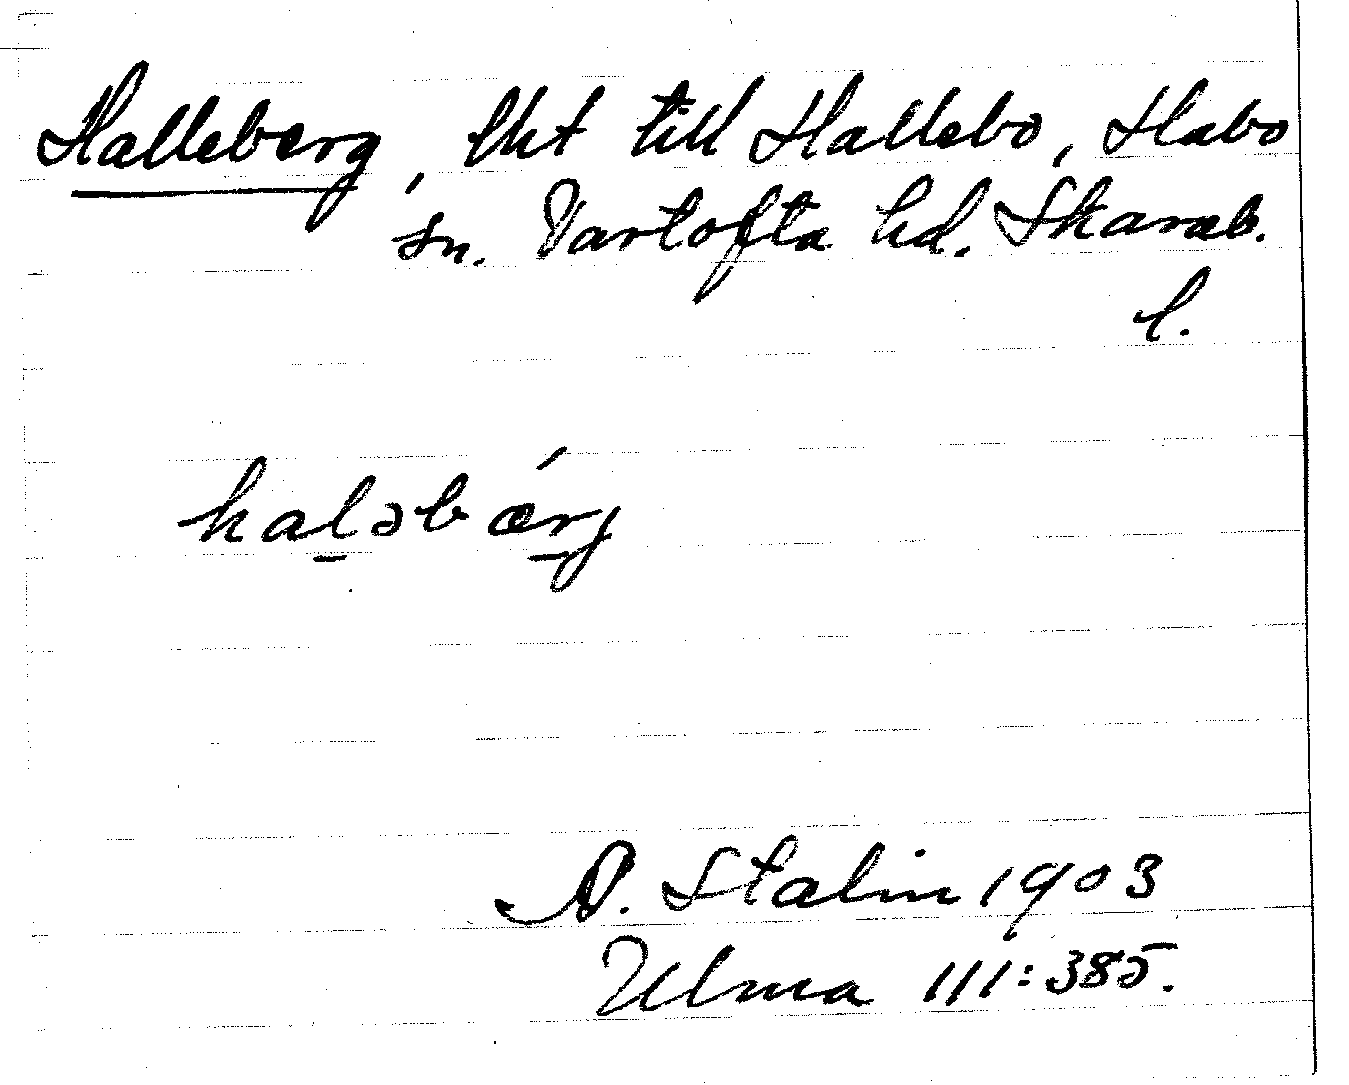 Halleberg, lht till Hallebo, Habo
sn. Vartofta hd. Skarab.
l.
haləbǽrj
A. Stalin 1903
Ulma 111:385.